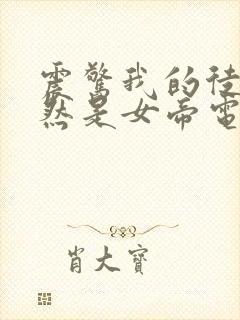 震驚我的徒
然是女帝電
肖大寶